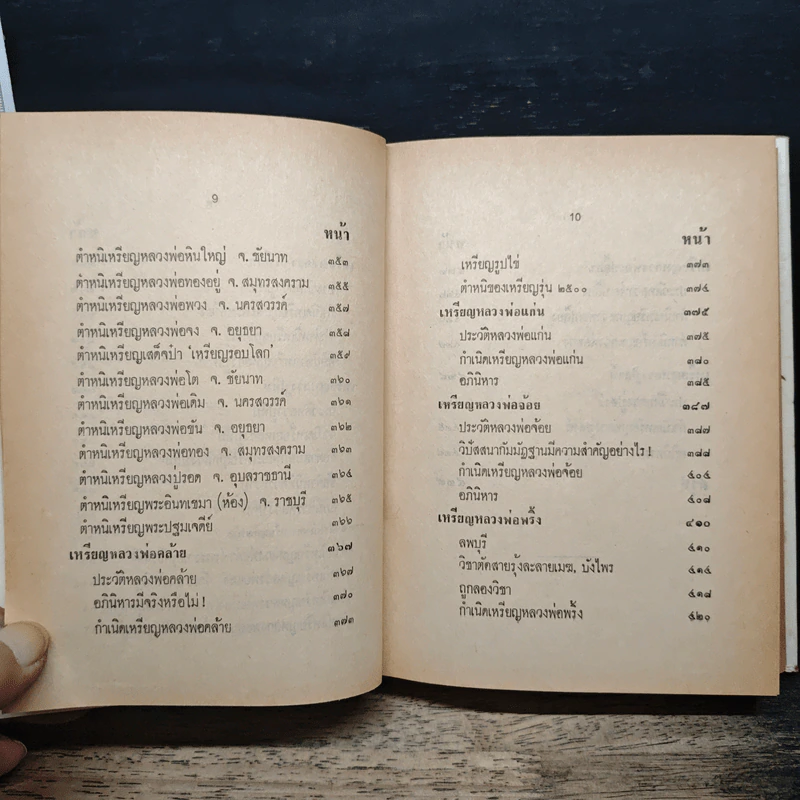 9
หน้า
ตำหนิเหรียญหลวงพ่อหินใหญ่ จ. ชัยนาท ๓๕๓
ตำหนิเหรียญหลวงพ่อทองอยู่ จ. สมุทรสงคราม ๓๕๕
ตำหนิเหรียญหลวงพ่อพวง จ. นครสวรรค์ ๓๕๗
ตำหนิเหรียญหลวงพ่อจง จ. อยุธยา ๓๕๘
ตำหนิเหรียญเสด็จป๋า 'เหรียญรอบโลก' ๓๕๙
ตำหนิเหรียญหลวงพ่อโต จ. ชัยนาท ๓๖๐
ตำหนิเหรียญหลวงพ่อเดิม จ. นครสวรรค์ ๓๖๑
ตำหนิเหรียญหลวงพ่อขัน จ. อยุธยา ๓๖๒
ตำหนิเหรียญหลวงพ่อทอง จ. สมุทรสงคราม ๓๖๓
ตำหนิเหรียญหลวงปู่รอด จ. อุบลราชธานี ๓๖๔
ตำหนิเหรียญพระอินทเขมา (ห้อง) จ. ราชบุรี ๓๖๕
ตำหนิเหรียญพระปฐมเจดีย์ ๓๖๖
เหรียญหลวงพ่อคล้าย ๓๖๗
ประวัติหลวงพ่อคล้าย ๓๖๗
อภินิหารมีจริงหรือไม่ ! ๓๗๐
กำเนิดเหรียญหลวงพ่อคล้าย ๓๗๓
10
หน้า
เหรียญรูปไข่ ๓๗๓
ตำหนิของเหรียญรุ่น ๒๕๐๐ ๓๗๔
เหรียญหลวงพ่อแก่น ๓๗๕
ประวัติหลวงพ่อแก่น ๓๗๕
กำเนิดเหรียญหลวงพ่อแก่น ๓๘๐
อภินิหาร ๓๘๕
เหรียญหลวงพ่อจ้อย ๓๘๗
ประวัติหลวงพ่อจ้อย ๓๘๗
วิปัสสนากัมมัฏฐานมีความสำคัญอย่างไร ! ๓๘๘
กำเนิดเหรียญหลวงพ่อจ้อย ๔๐๔
อภินิหาร ๔๐๘
เหรียญหลวงพ่อพริ้ง ๔๑๐
ลพบุรี ๔๑๐
วิชาตัดสายรุ้งละลายเมฆ, บังไพร ๔๑๔
ถูกลองวิชา ๔๑๘
กำเนิดเหรียญหลวงพ่อพริ้ง ๔๒๐